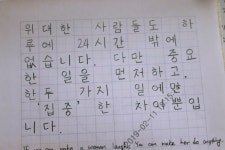 위대한 사람들도 하
루에 24시간 밖에
없습니다. 다만 중요
한 일을 먼저하고,
한두 가지 일에만
'집중'한 자여뿐입
니다.
2019-02-11